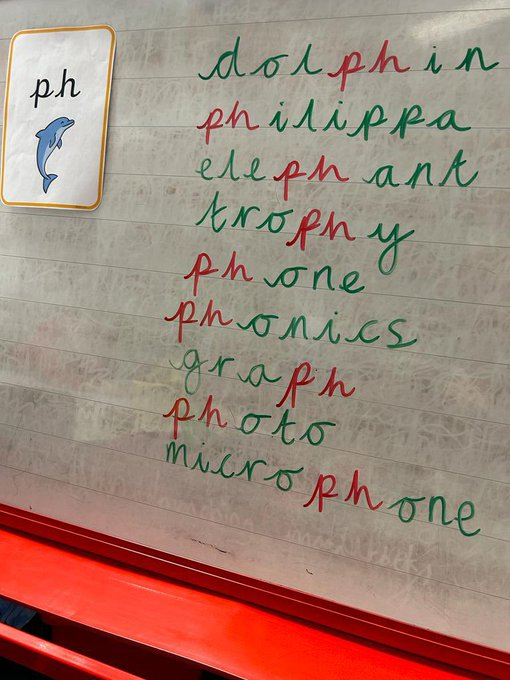 ph
dolphin
philippa
elephant
trophy
phone
phonics
graph
photo
microphone